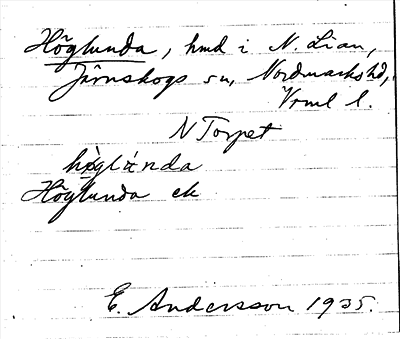 Höglunda, hmd i N. Lian,
Järnskogs sn, Nordmarks hd,
Vrml l.
N Torpet
Höglunda ek
E. Andersson 1935.